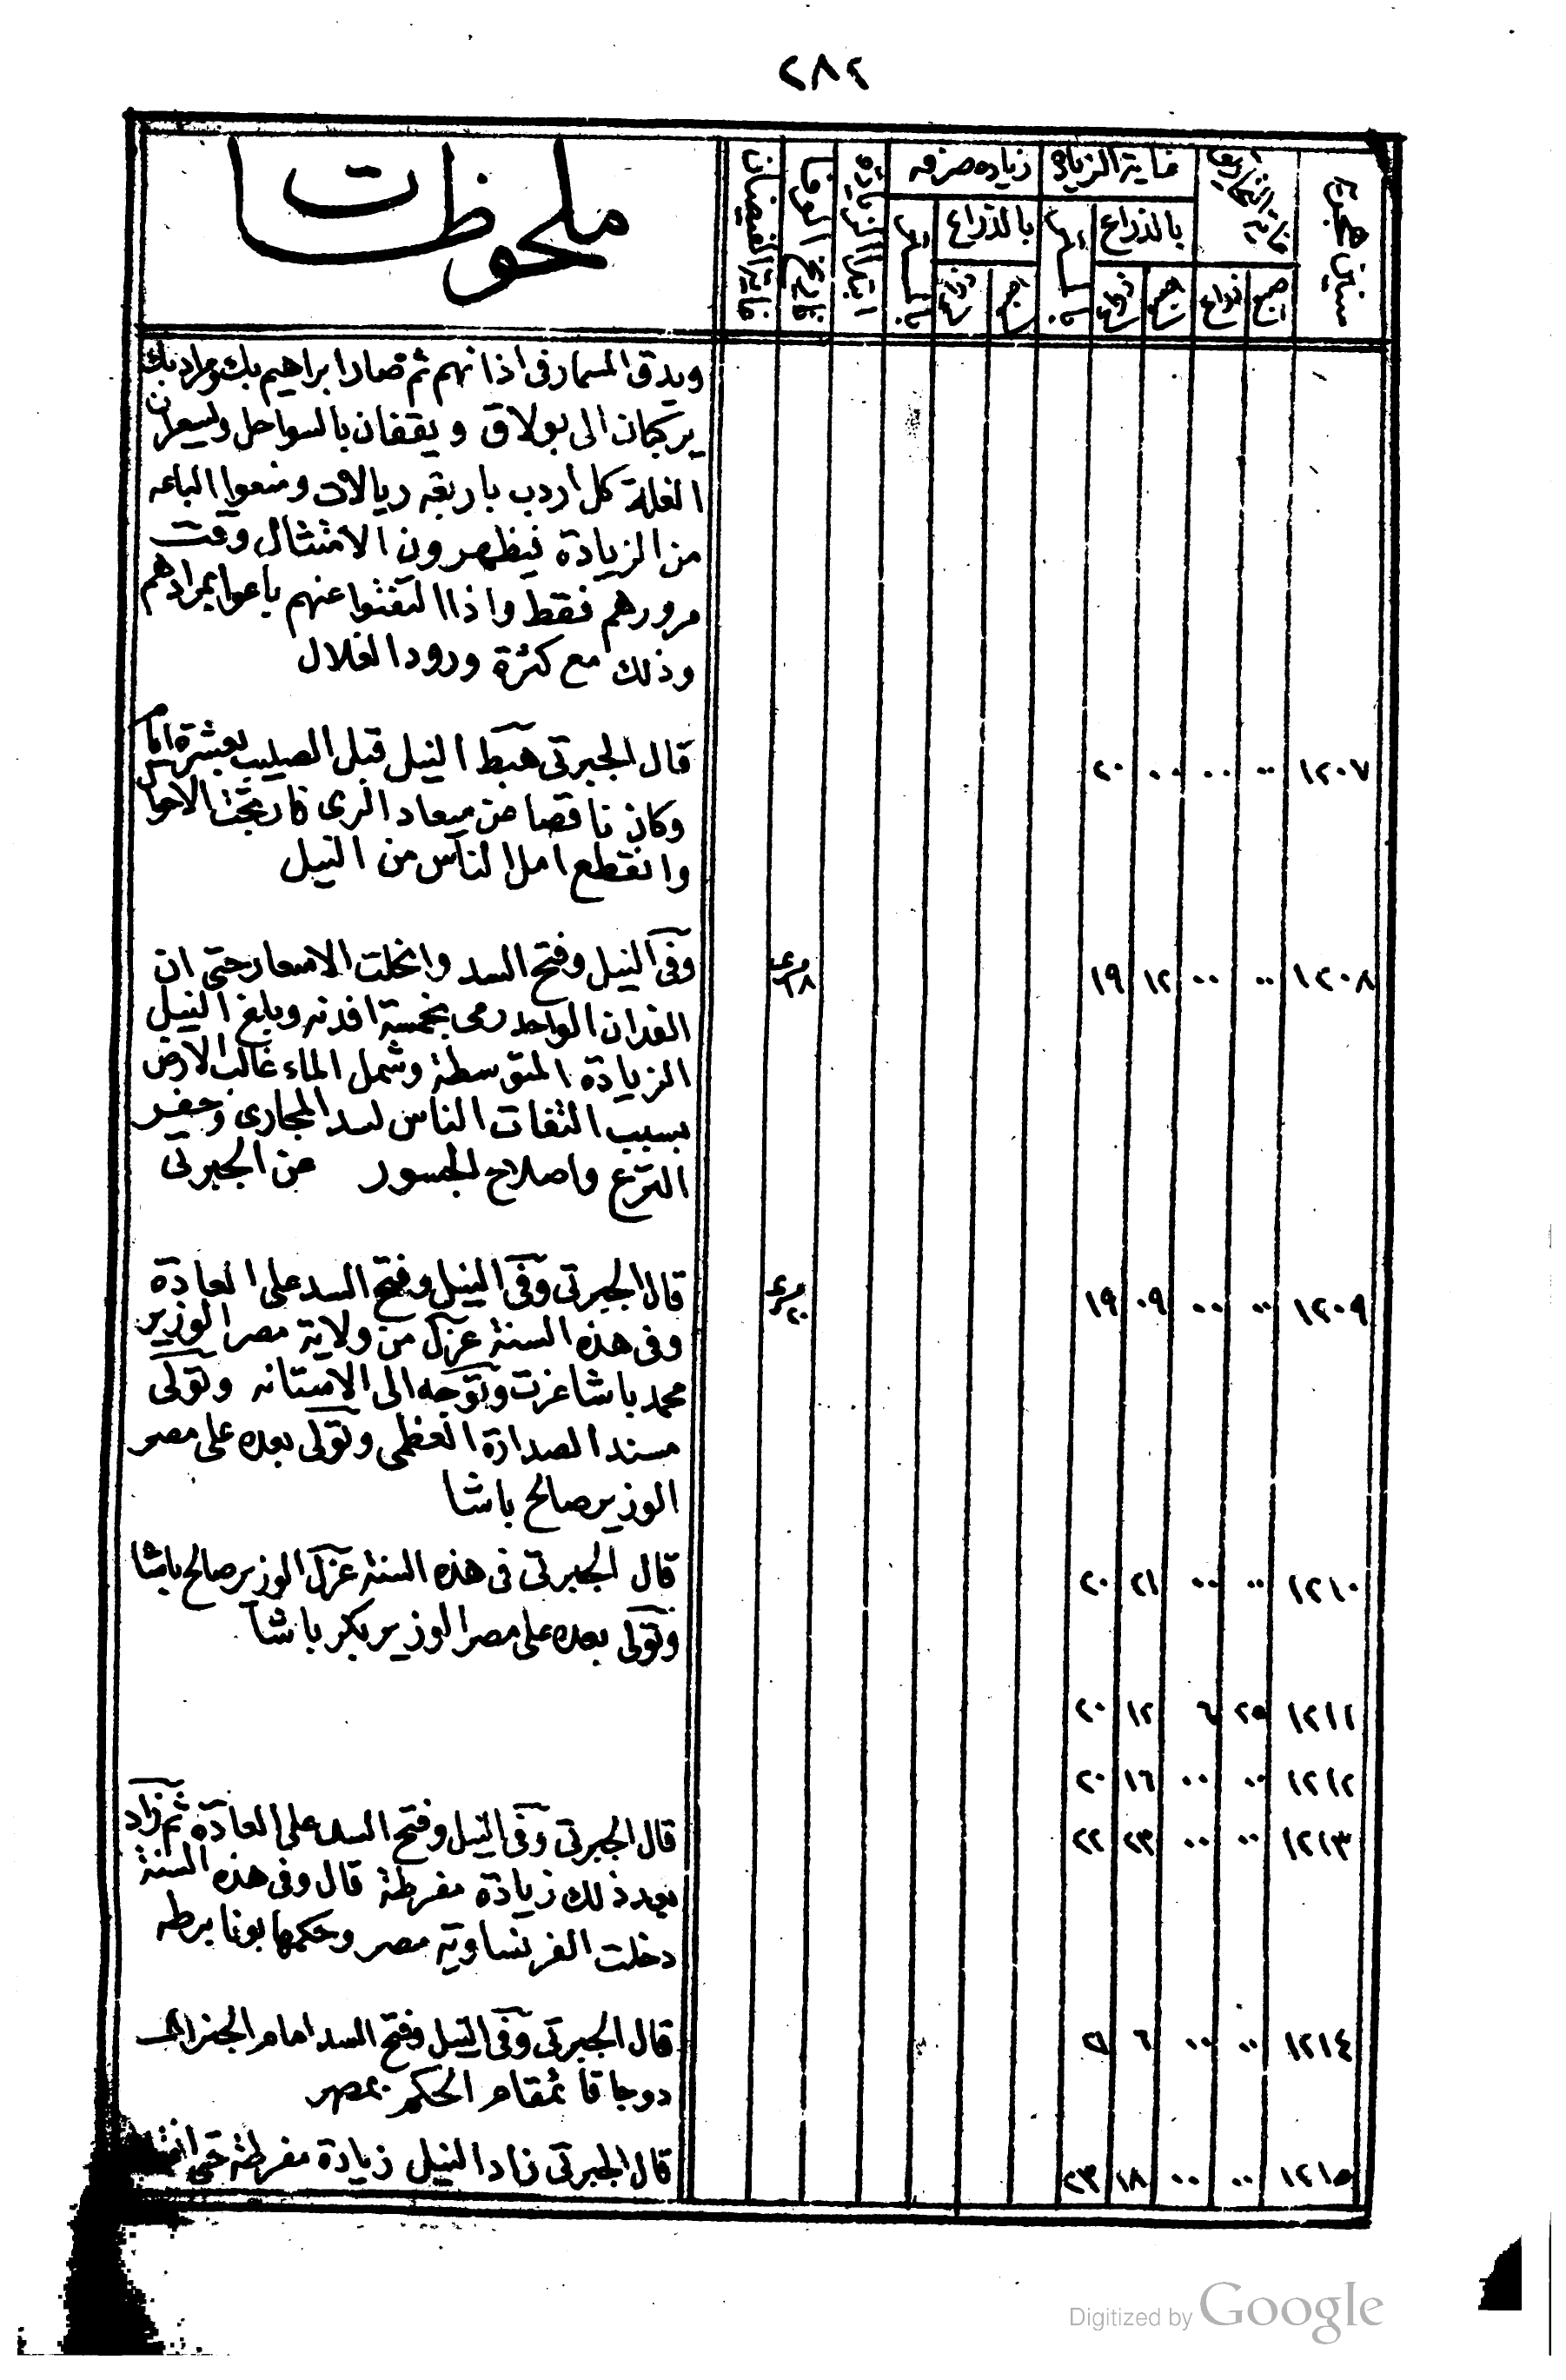 ٢٨٢
سنين هجرية
غاية التحاريق
غاية الزيادة
زيادة صرفه
ابتدا الزيادة
تاريخ الوفا
غاية الفيضان
ملحوظات
بالذراع
بالذراع
اصبع
ذراع
اصبع
ذراع
اصبع
ذراع
ويدق المسمار فى اذانهم ثم صار ابراهيم بك ومراد بك
يركبان الى بولاق ويقفان بالسواحل ويسعران
الغلة كل اردب باربعه ريالات ومنعوا الباعه
من الزيادة فيظهرون الامتثال وقت
مرورهم فقط واذا التفتوا عنهم باعوا بمرادهم
وذلك مع كثرة ورود الغلال
١٢٠٧ ٠٠ ٠٠ ٠٠ ٢٠ قال الجبرتى هبط النيل قبل الصليب بعشرة ايام
وكان ناقصا من ميعاد الرى فارتجت الاحوال
وانقطع امل الناس من النيل
١٢٠٨ ٠٠ ٠٠ ١٢ ١٩ ١٨ مسرى وفى النيل وفتح السد وانحلت الاسعار حتى ان
الفدان الواحد رمى بخمسة افدنه وبلغ النيل
الزيادة المتوسطة وشمل الماء غالب الارض
بسبب التفات الناس لسد المجارى وحفر
الترع واصلاح الجسور من الجبرتى
١٢٠٩ ٠٠ ٠٠ ٠٩ ١٩ ٢٠ مسرى قال الجبرتى وفى النيل وفتح السد على العادة
وفى هذه السنة عزل من ولاية مصر الوزير
محمد باشا عزت وتوجه الى الاستانه وتولى
مسند الصدارة العظمى وتولى بعده على مصر
الوزير صالح باشا
١٢١٠ ٠٠ ٠٠ ٢١ ٢٠ قال الجبرتى فى هذه السنة عزل الوزير صالح باشا
وتولى بعده على مصر الوزير بكر باشا
١٢١١ ٢٥ ٦ ١٢ ٢٠
١٢١٢ ٠٠ ٠٠ ١٦ ٢٠
١٢١٣ ٠٠ ٠٠ ٢٣ ٢٢ قال الجبرتى وفى النيل وفتح السد على العادة ثم زاد
بعد ذلك زيادة مفرطة قال وفى هذه السنة
دخلت الفرنساوية مصر وحكمها بونابرطه
١٢١٤ ٠٠ ٠٠ ٦ ٢١ قال الجبرتى وفى النيل وفتح السد امام الجنرال
دوجا قائمقام الحكم بمصر
١٢١٥ ٠٠ ٠٠ ١٨ ٢٣ قال الجبرتى زاد النيل زيادة مفرطة حتى
Digitized by Google